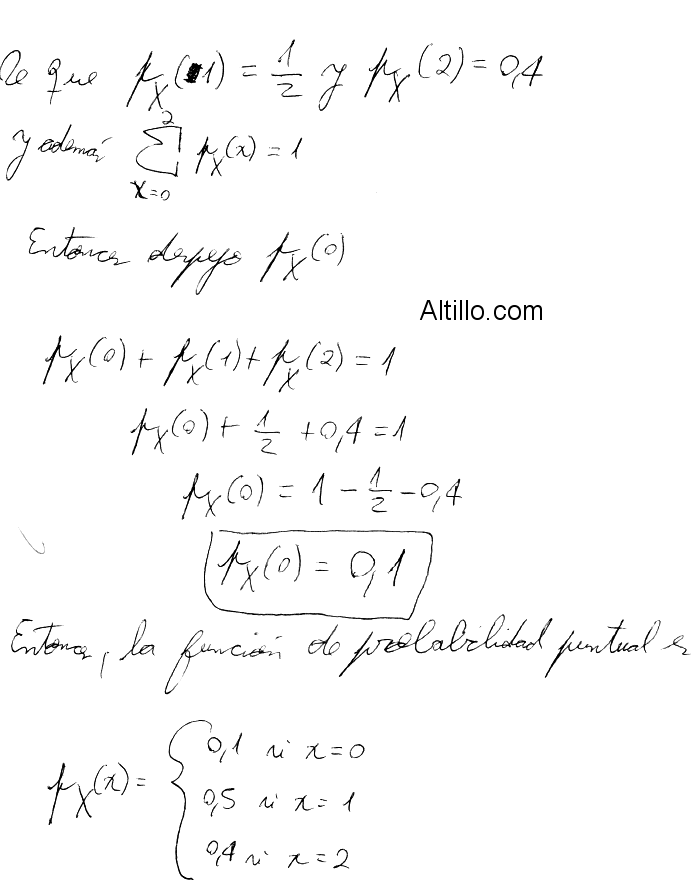 se que pX(1) = 1/2 y pX(2) = 0,4
y además ∑ x=0 2 pX(x) = 1
Entonces despejo pX(0)
Altillo.com
pX(0) + pX(1) + pX(2) = 1
pX(0) + 1/2 + 0,4 = 1
pX(0) = 1 - 1/2 - 0,4
pX(0) = 0,1
Entonces, la función de probabilidad puntual es
pX(x) = { 0,1 si x = 0
0,5 si x = 1
0,4 si x = 2